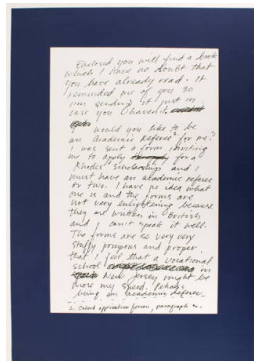 Enclosed you will find a book
which I have no doubt that
you have already read. It
reminded me of you so
I'm sending it just in
case you haven't.
would you like to be
an academic referee for me?
I was sent a form inviting
me to apply for a
Rhodes Scholarship and I
must have an academic referee
or two. I have no idea what
one is and the forms are
not very enlightening because
they are written in British
and I can't speak it well.
The forms are so very very
stuffy pompous and proper
that I feel that a vocational
school in
New Jersey might be
more my speed. Perhaps
being an academic referee